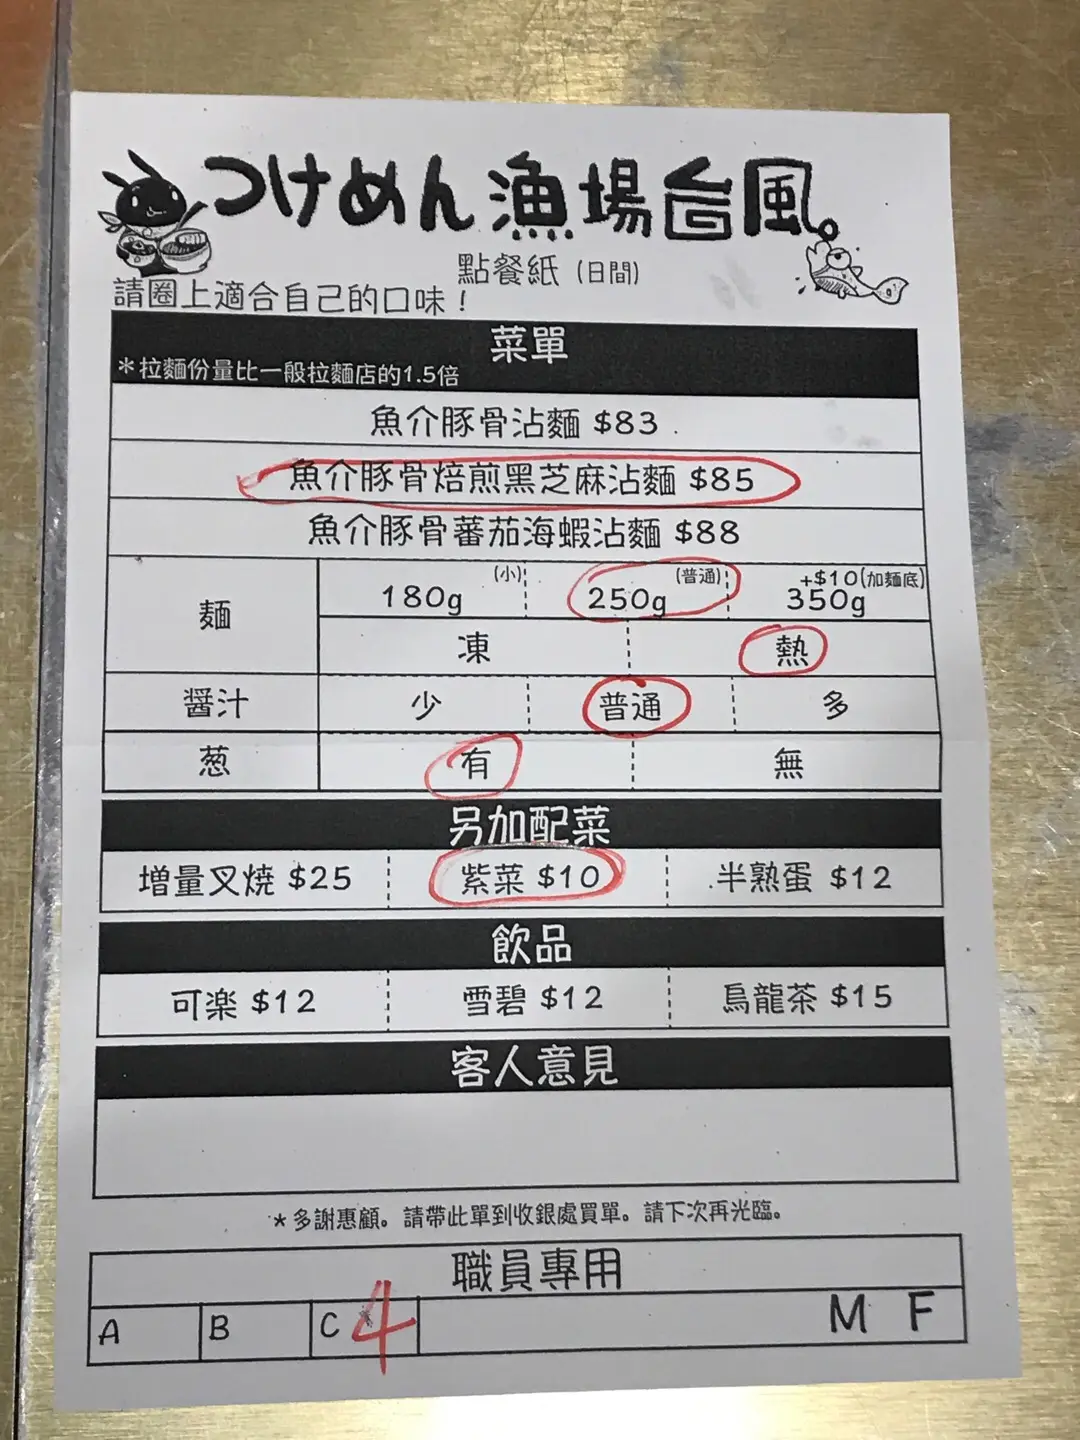 つけめん漁場台風。
點餐紙 (日間)
請圈上適合自己的口味！
菜單
＊拉麵份量比一般拉麵店的1.5倍
魚介豚骨沾麵 $83
魚介豚骨焙煎黑芝麻沾麵 $85
魚介豚骨蕃茄海蝦沾麵 $88
麵 180g (小) 250g (普通) 350g +$10(加麵底)
凍 熱
醬汁 少 普通 多
葱 有 無
另加配菜
增量叉燒 $25 紫菜 $10 半熟蛋 $12
飲品
可楽 $12 雪碧 $12 烏龍茶 $15
客人意見
＊多謝惠顧。請帶此單到收銀處買單。請下次再光臨。
職員專用
A B C 4 M F